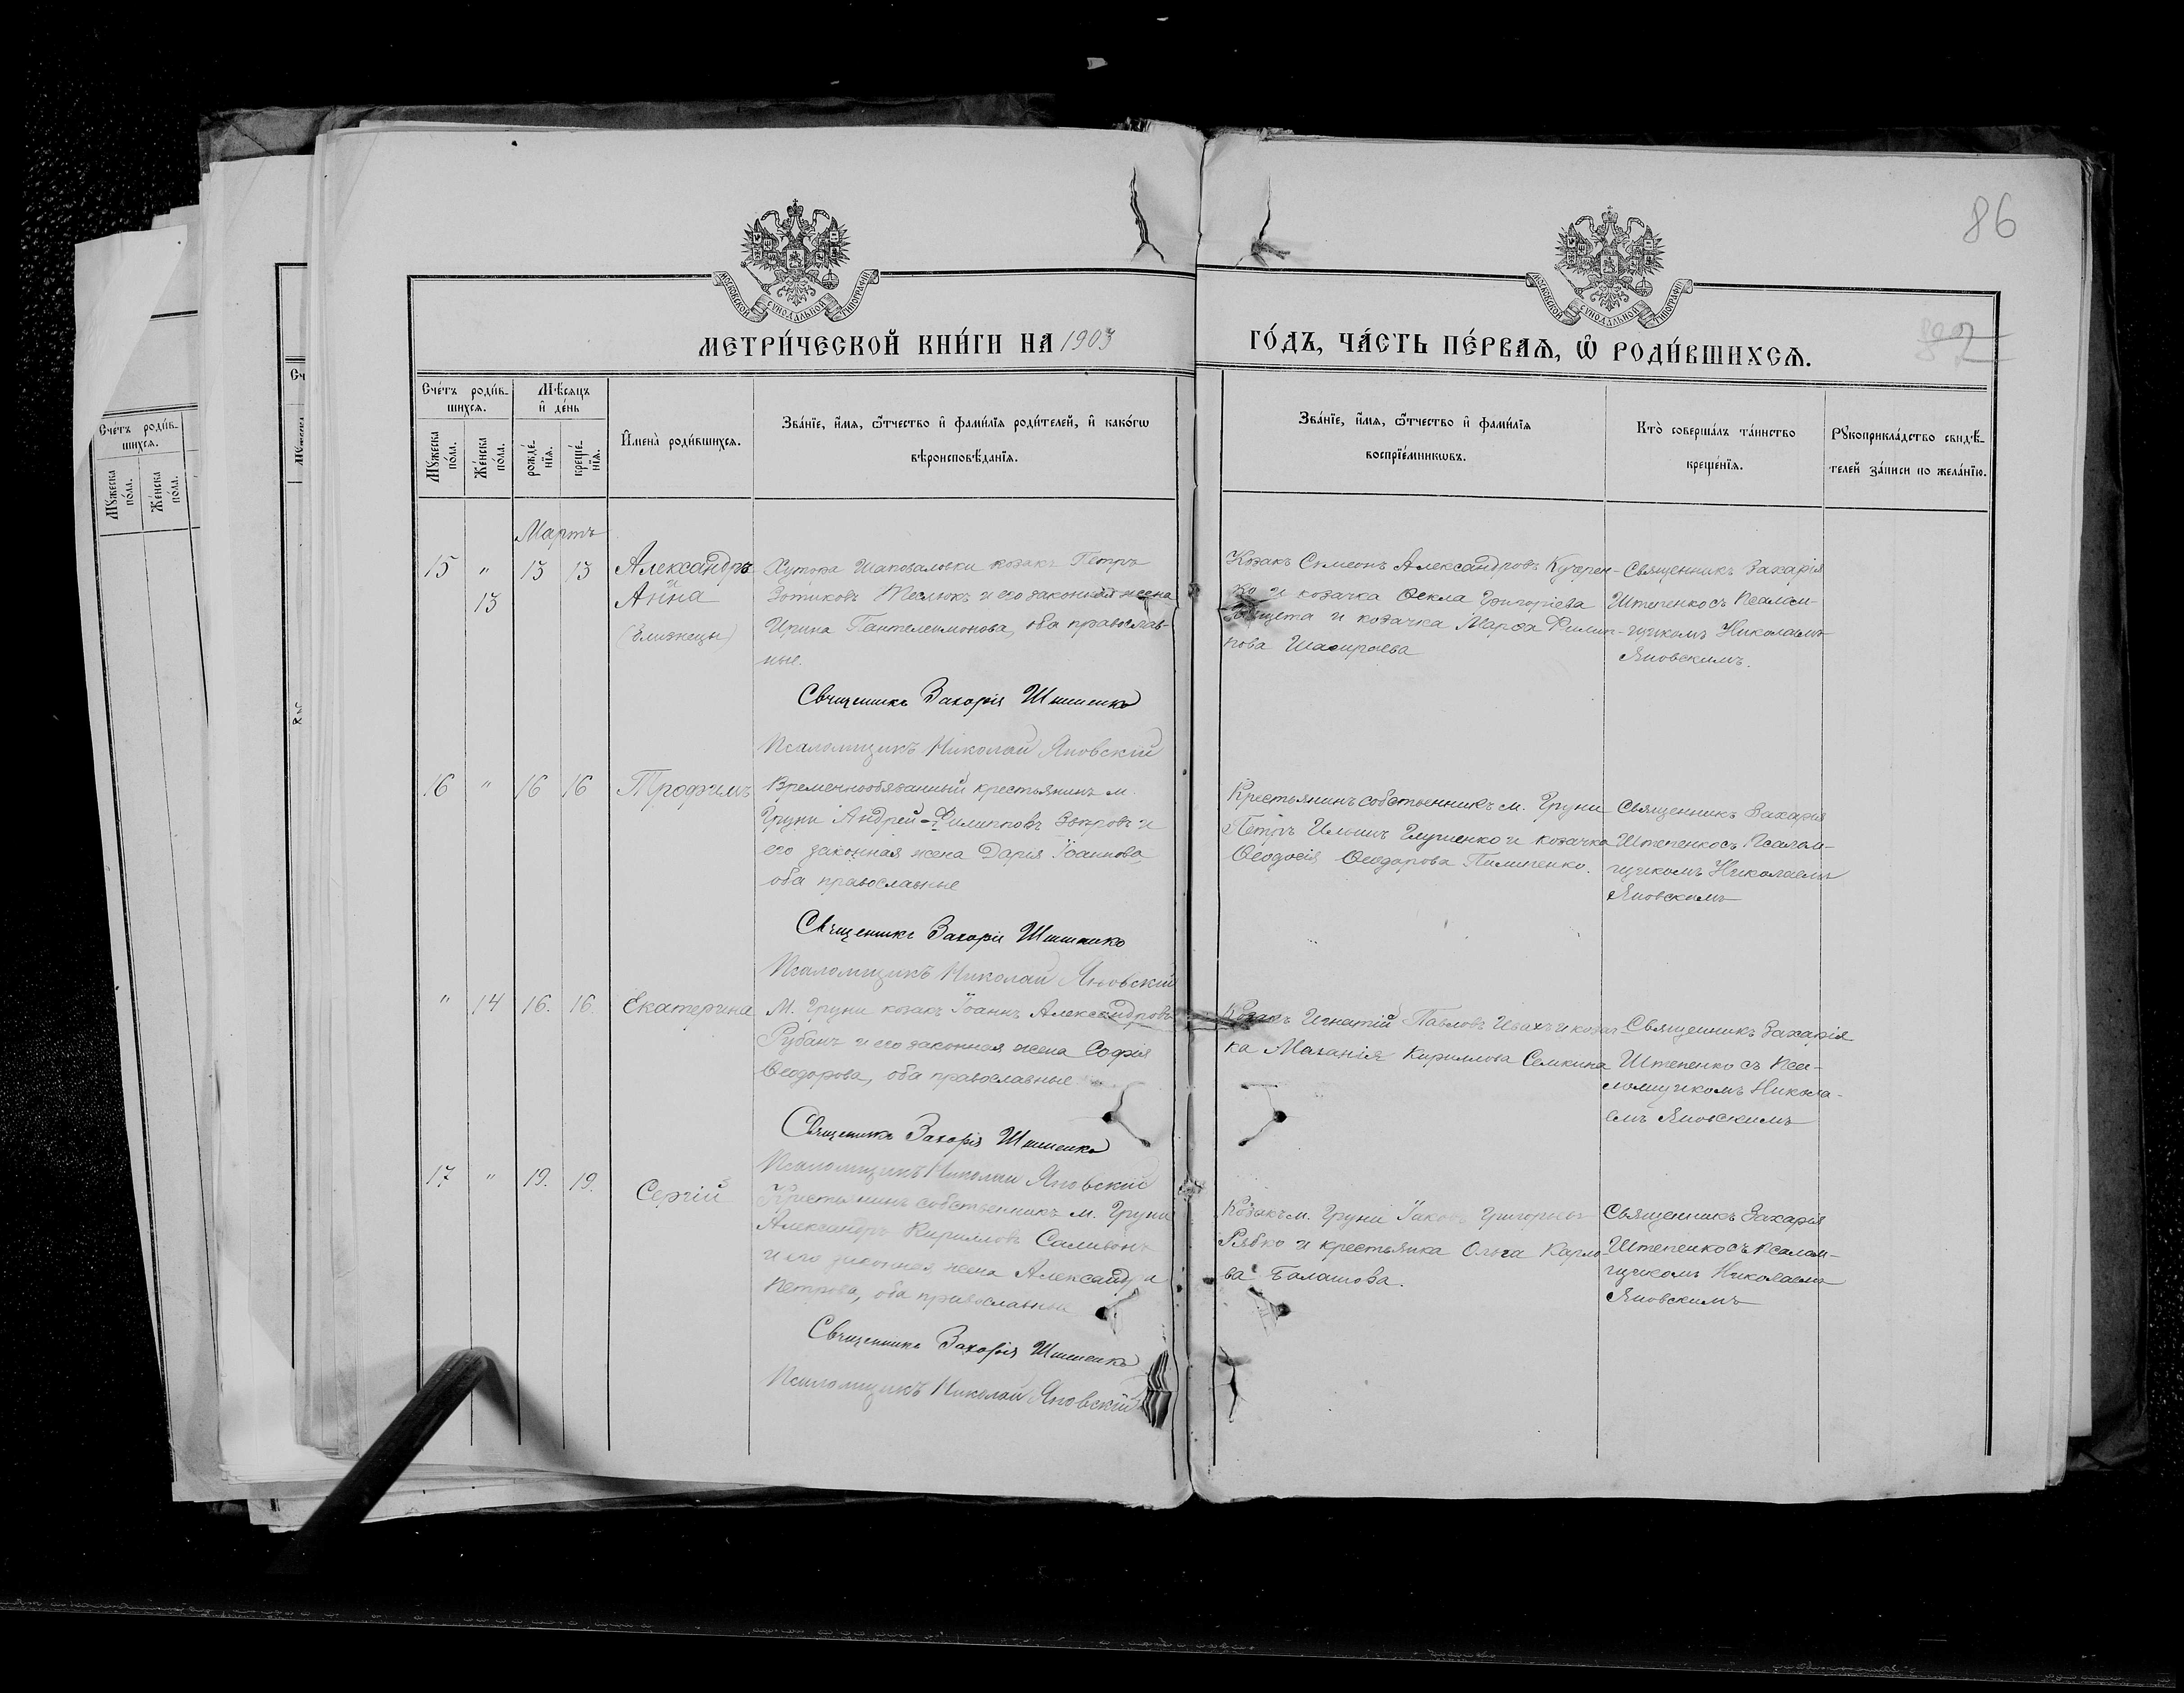 86
МОСКОВСКОЙ СѴНОДАЛЬНОЙ ТИПОГРАФІИ
МОСКОВСКОЙ СѴНОДАЛЬНОЙ ТИПОГРАФІИ
МЕТРИ́ЧЕСКОЙ КНИ́ГИ НА 1903
ГО́ДЪ, ЧА́СТЬ ПЕ́РВАѦ, Ѽ РОДИ́ВШИХСѦ.
Сче́тъ роди́в-
шихсѧ.
Мꙋ́жеска
по́ла.
Же́нска
по́ла.
Мѣ́сѧцъ
и҆ де́нь
рожде́-
нїѧ.
креще́-
нїѧ.
И҆мена̀ роди́вшихсѧ.
Зва́нїе, и҆́мѧ, ѻ҆́тчество и҆ фами́лїѧ роди́телей, и҆ како́гѡ
вѣроисповѣ́данїѧ.
Зва́нїе, и҆́мѧ, ѻ҆́тчество и҆ фами́лїѧ
воспрїе́мникѡвъ.
Кто̀ соверша́лъ та́инство
креще́нїѧ.
Рꙋкоприкла́дство свидѣ́-
телей за́писи по жела́нїю.
Сче́тъ роди́в-
шихсѧ.
Мꙋ́жеска
по́ла.
Же́нска
по́ла.
Мартъ
15 " 13 13 Александръ
и
13 Анна
(близнецы)
Хутора Шаповаловки козакъ Петръ
Зотиковъ Теслюкъ и его законная жена
Ирина Пантелеимонова, оба православ-
ные.
Священникъ Захарія Штепенко
Псаломщикъ Николай Яновскій
Козакъ Симеонъ Александровъ Кучерен-
ко и козачка Ѳекла Григоріева
и козачка Марѳа Филип-
пова
Священникъ Захарія
Штепенко съ псалом-
щикомъ Николаемъ
Яновскимъ.
16 " 16 16 Трофимъ
Временнообязанный крестьянинъ м.
Груни Андрей Филипповъ и
его законная жена Дарія Іоаннова
оба православные
Священникъ Захарія Штепенко
Псаломщикъ Николай Яновскій
Крестьянинъ собственникъ м. Груни
Петръ Ильинъ Глущенко и козачка
Ѳеодосія Ѳеодорова Пилипенко.
Священникъ Захарія
Штепенко съ псалом-
щикомъ Николаемъ
Яновскимъ
" 14 16. 16. Екатерина
М. Груни козакъ Іоаннъ Александровъ
Рубанъ и его законная жена Софія
Ѳеодорова, оба православные
Священникъ Захарія Штепенко
Псаломщикъ Николай Яновскій
Козакъ Игнатій Павловъ Ивахъ и козач-
ка Маланія Кириллова Семкина
Священникъ Захарія
Штепенко съ пса-
ломщикомъ Никола-
емъ Яновскимъ
17 " 19. 19. Сергій
Крестьянинъ собственникъ м. Груни
Александръ Кирилловъ Саливонъ
и его законная жена Александра
Петрова, оба православные
Священникъ Захарія Штепенко
Псаломщикъ Николай Яновскій
Козакъ м. Груни Іаковъ Григорьевъ
Рябко и крестьянка Ольга Карпо-
ва Балашова.
Священникъ Захарія
Штепенко съ псалом-
щикомъ Николаемъ
Яновскимъ